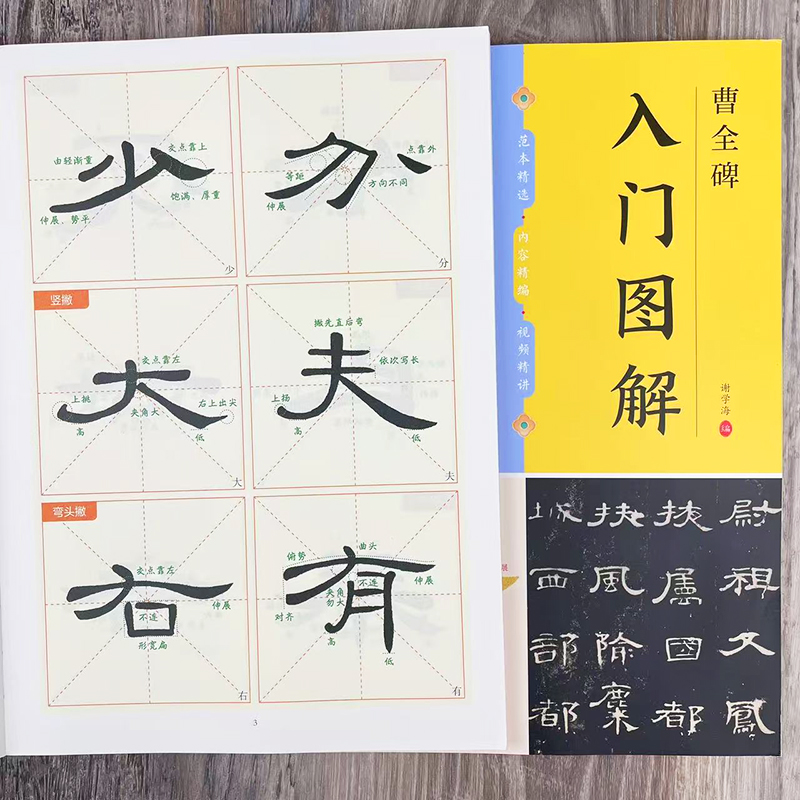 交点靠上
由轻渐重
少
饱满、厚重
伸展、势平
少
点靠外
分
等距
方向不同
伸展
分
竖撇
交点靠左
大
上挑
右上出尖
夹角大
高
低
大
撇先直后弯
夫
依次写长
上扬
高
低
夫
弯头撇
交点靠左
右
伸展
不连
形宽扁
右
曲头
俯势
有
不连
伸展
夹角
勿大
对齐
高
低
有
3
曹全碑
入门图解
谢学海
编
范本精选·内容精编·视频精讲
尉祖父鳳
掖屬國都
扶風隃麋
城西部都